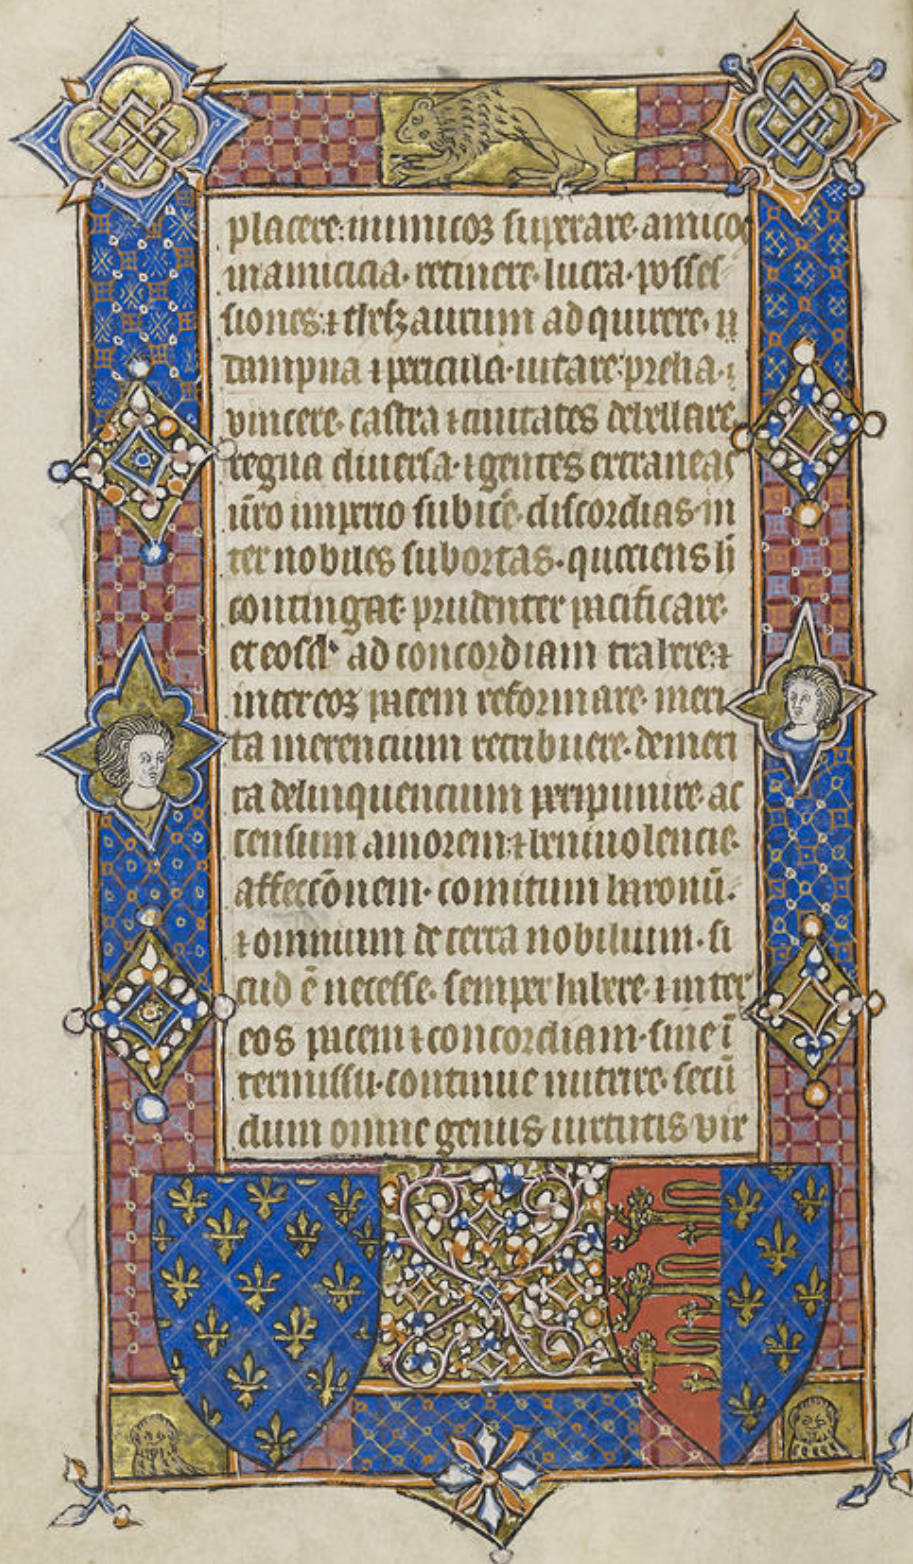 placere: inimicoꝝ superare. amicoꝝ
inamicicia. retinere. lucra. posses-
siones. ⁊ thesaurum adquirere.
dampna ⁊ pericula. uitare. prelia.
vincere. castra ⁊ ciuitates debellare.
regna diuersa. ⁊ gentes extraneas
ūro imperio subicẽ. discordias in
ter nobiles subortas. quociens
contingat prudenter pacificare.
et eosdꝫ ad concordiam trahere. ⁊
inter eoꝝ pacem reformare. meri
ta merencium retribuere. demeri
ta delinquencium perpunire. ac
censum amorem. ⁊ beniuolencie.
affeccõnem. comitum baronũ.
⁊ omnium de terra nobilium. si
cud ẽ necesse. semper habere. ⁊ inter
eos pacem ⁊ concordiam. sine ĩ
termissu. continue nutrire. secũ
dum omne genus uirtutis vir